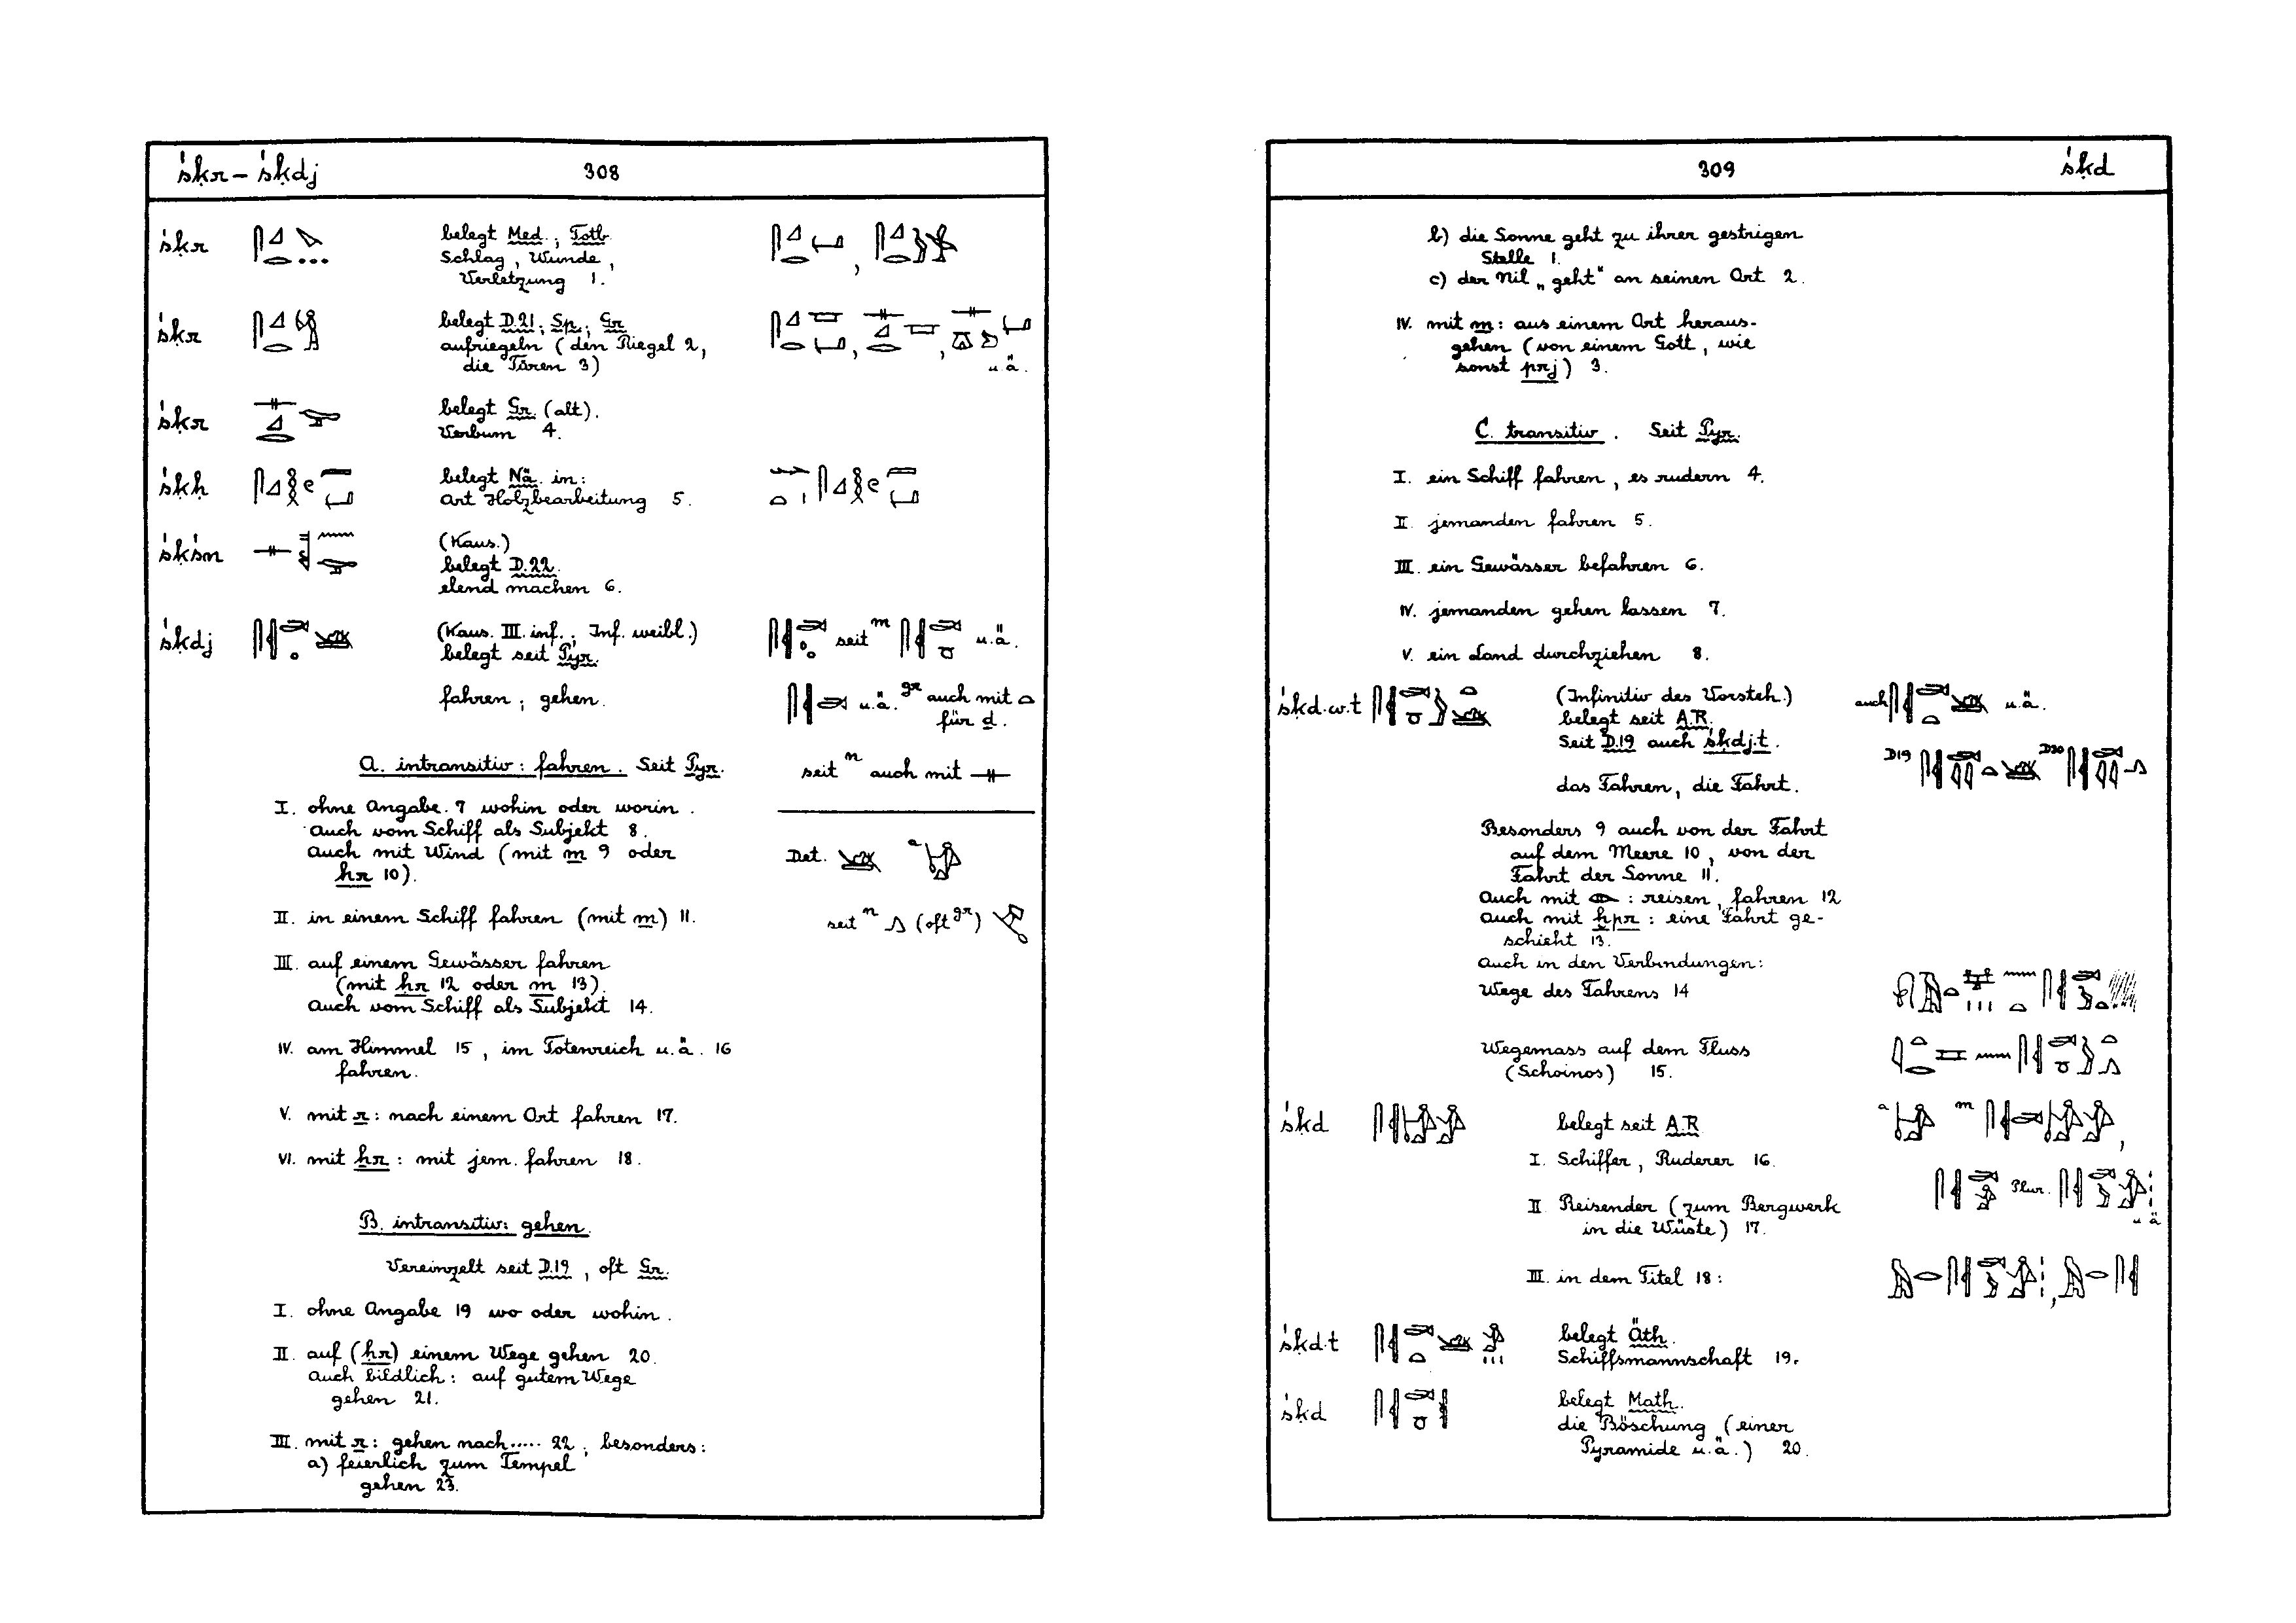 śḳr – śḳdj 308
śḳr belegt Med.; Totb.
Schlag, Wunde,
Verletzung 1.
śḳr belegt D.21; Sp.; Gr.
aufriegeln (den Riegel 2,
die Türen 3)
u.ä.
śḳr belegt Gr. (alt).
Verbum 4.
śḳḥ belegt Nä. in:
Art Holzbearbeitung 5.
śḳśn (Kaus.)
belegt D.22.
elend machen 6.
śḳdj (Kaus. III. inf.; Inf. weibl.) seit m u.ä.
belegt seit Pyr.
fahren; gehen. u.ä. gr auch mit
für d.
A. intransitiv: fahren. Seit Pyr. seit n auch mit
I. ohne Angabe 7 wohin oder worin.
Auch vom Schiff als Subjekt 8.
Auch mit Wind (mit m 9 oder Det. a
ḥr 10).
II. in einem Schiff fahren (mit m) 11. seit n (oft gr)
III. auf einem Gewässer fahren
(mit ḥr 12 oder m 13).
Auch vom Schiff als Subjekt 14.
IV. am Himmel 15, im Totenreich u.ä. 16
fahren.
V. mit r: nach einem Ort fahren 17.
VI. mit ẖr: mit jem. fahren 18.
B. intransitiv: gehen.
Vereinzelt seit D.19, oft Gr.
I. ohne Angabe 19 wo oder wohin.
II. auf (ḥr) einem Wege gehen 20.
Auch bildlich: auf gutem Wege
gehen 21.
III. mit r: gehen nach..... 22; besonders:
a) feierlich zum Tempel
gehen 23.
309 śḳd
b) die Sonne geht zu ihrer gestrigen
Stelle 1.
c) der Nil „geht“ an seinen Ort 2.
IV. mit m: aus einem Ort heraus-
gehen (von einem Gott, wie
sonst prj) 3.
C. transitiv. Seit Pyr.
I. ein Schiff fahren, es rudern 4.
II. jemanden fahren 5.
III. ein Gewässer befahren 6.
IV. jemanden gehen lassen 7.
V. ein Land durchziehen 8.
śḳd.w.t (Infinitiv des Vorsteh.) auch u.ä.
belegt seit A.R.
Seit D.19 auch śḳdj.t.
D19 D20
das Fahren, die Fahrt.
Besonders 9 auch von der Fahrt
auf dem Meere 10, von der
Fahrt der Sonne 11.
Auch mit : reisen, fahren 12
Auch mit ḫpr: eine Fahrt ge-
schieht 13.
Auch in den Verbindungen:
Wege des Fahrens 14
Wegemass auf dem Fluss
(Schoinos) 15.
śḳd belegt seit A.R. a m
I. Schiffer, Ruderer 16.
Plur.
II. Reisender (zum Bergwerk
in die Wüste) 17. u.ä.
III. in dem Titel 18:
śḳd.t belegt Äth.
Schiffsmannschaft 19.
śḳd belegt Math.
die Böschung (einer
Pyramide u.ä.) 20.